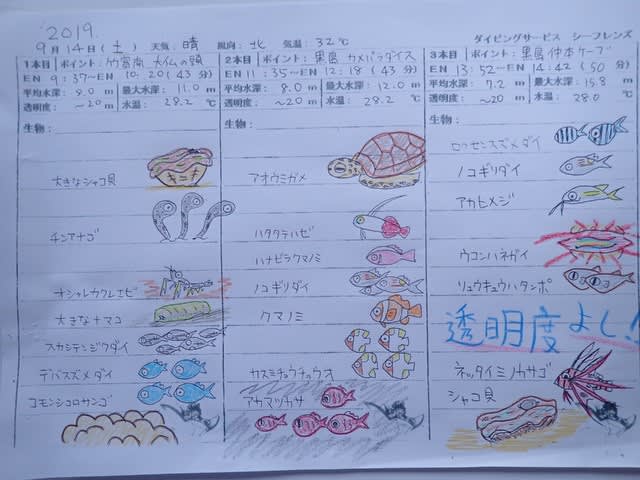 2019.
9月14日(土) 天気:晴 風向:北 気温:32℃ ダイビングサービス シーフレンズ
1本目 ポイント:竹富南 大仏の頭
EN 9:37~EN 10:20(43分)
平均水深:9.0m 最大水深:11.0m
透明度:~20m 水温:28.2℃
生物:
大きなシャコ貝
キニナ
チンアナゴ
オシャレカクレエビ
大きなナマコ
スカシテンジクダイ
デバスズメダイ
コモンシコロサンゴ
2本目 ポイント:黒島 カメパラダイス
EN 11:35~EN 12:18(43分)
平均水深:8.0m 最大水深:12.0m
透明度:~20m 水温:28.2℃
生物:
アオウミガメ
ハタタテハゼ
ハナビラクマノミ
ノコギリダイ
クマノミ
カスミチョウチョウオ
アカマツカサ
3本目 ポイント:黒島 仲本ケーブ
EN 13:52~EN 14:42(50分)
平均水深:7.2m 最大水深:15.8m
透明度:~20m 水温:28.0℃
生物:
ロクセンスズメダイ
ノコギリダイ
アカヒメジ
ウコンハネガイ
リュウキュウハタンポ
透明度よし!!
ネッタイミノカサゴ
シャコ貝